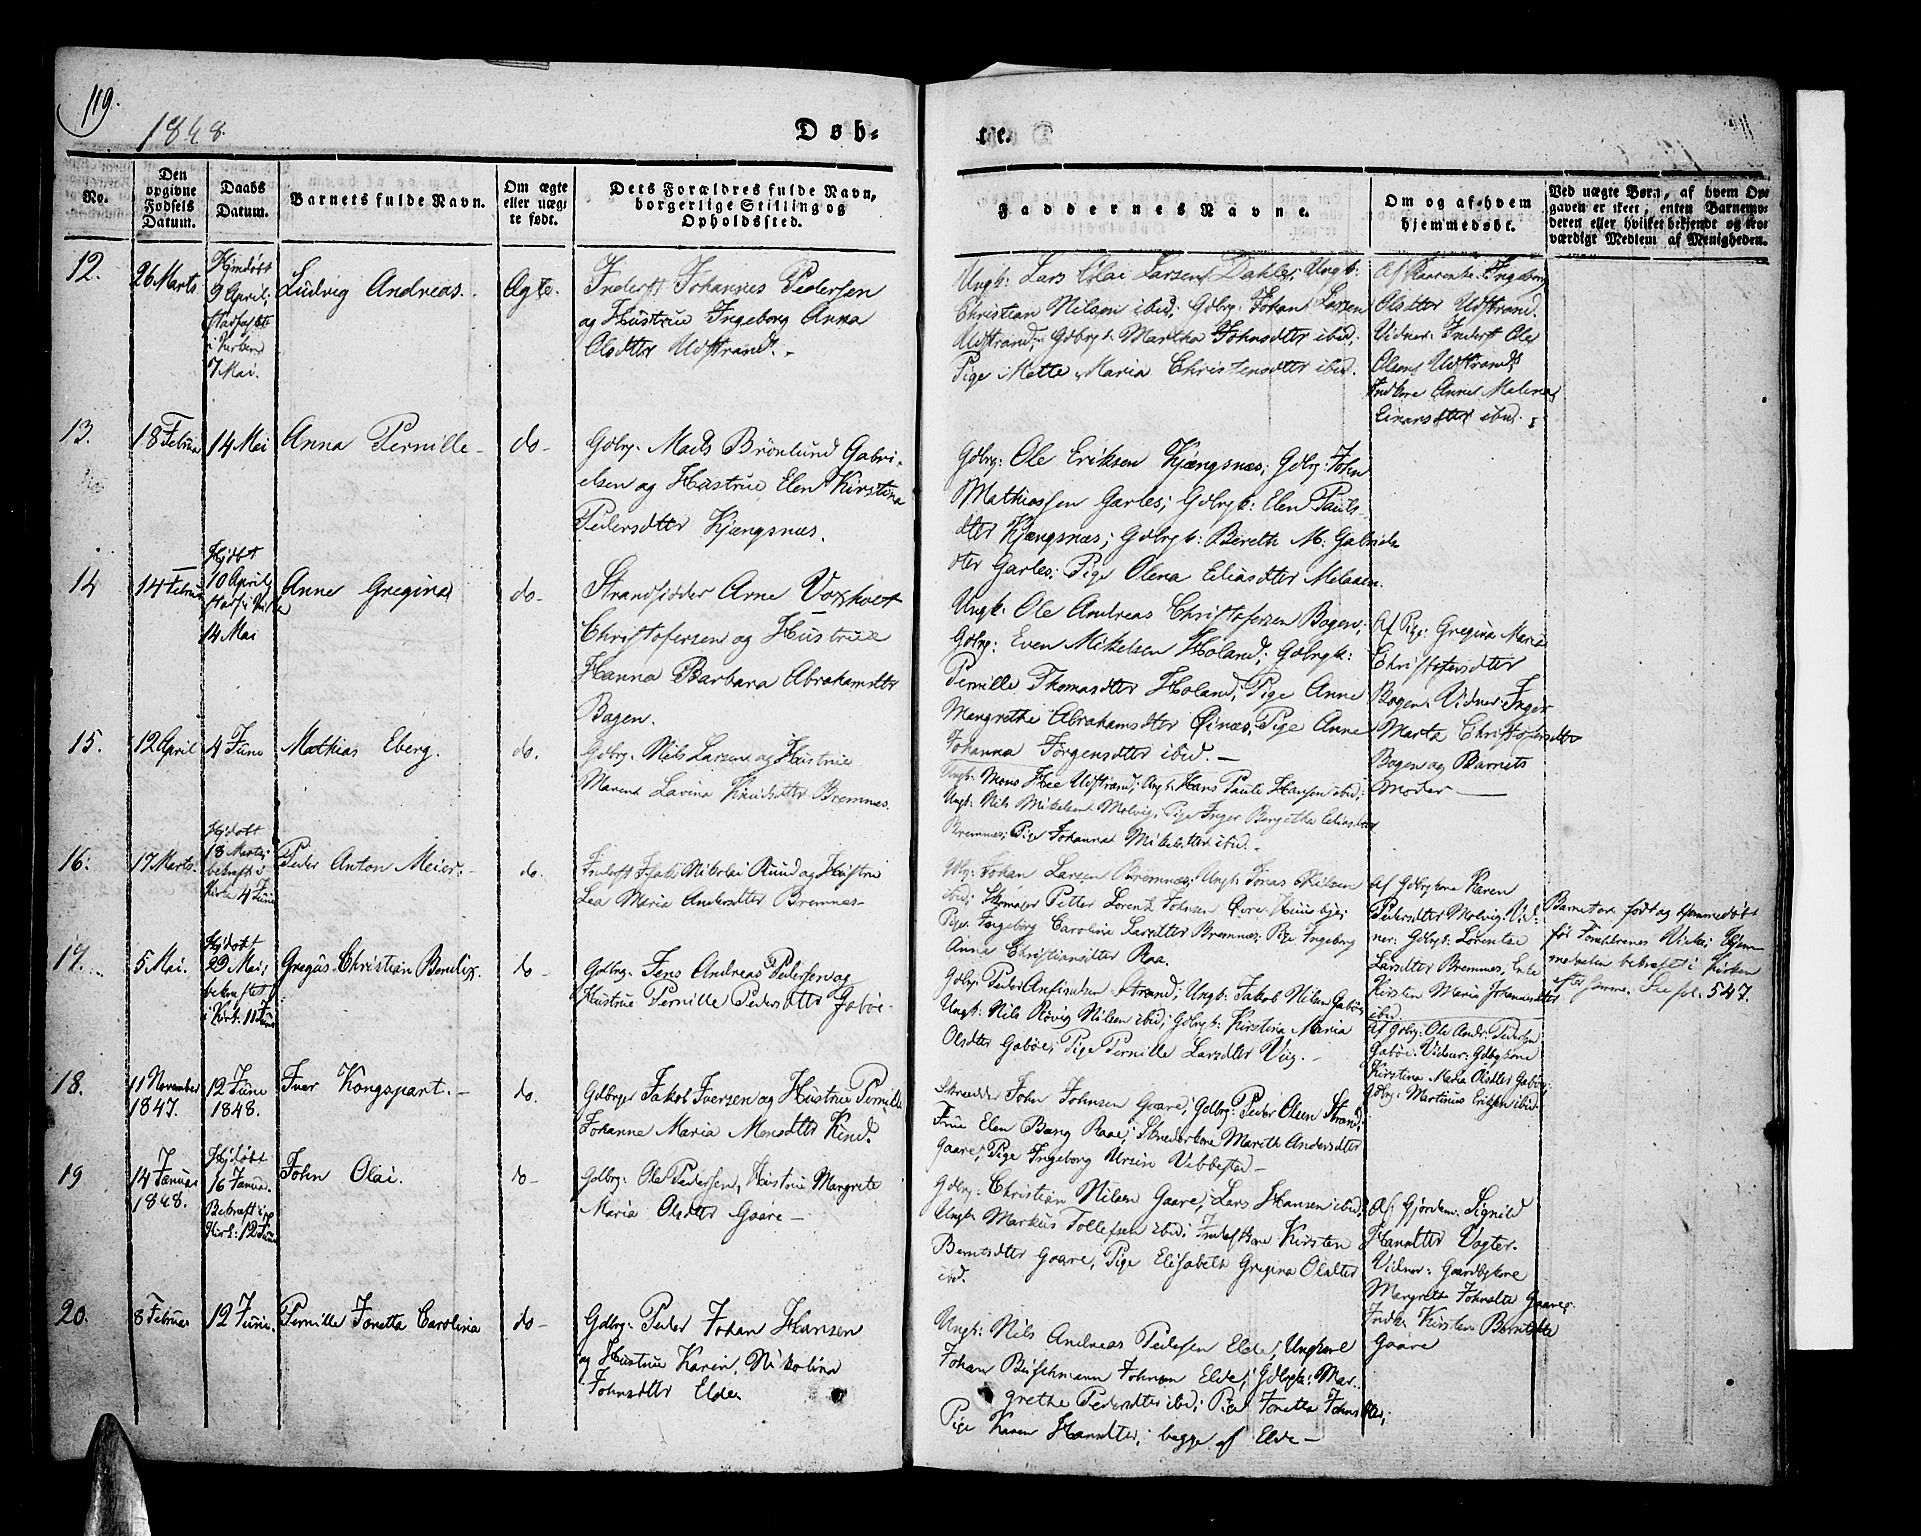 119.
1848.
Dob-
te.
No.
Den opgivne Fødsels Datum.
Daabs Datum.
Barnets fulde Navn.
Om ægte eller uægte født.
Dets Forældres fulde Navn, borgerlige Stilling og Opholdssted.
Faddernes Navne.
Om og af hvem hjemmedøbt.
Ved uægte Børn, af hvem Opgaven er skeet, enten Barnemoderen eller hvilket bekjendt og troværdigt Medlem af Menigheden.
12.
26 Marts
Hjmdøbt
9 April,
stadfæstet
i Kirken
7 Mai.
Ludvig Andreas.
Ægte.
Inderst Johannes Pedersen
og Hustrue Ingeborg Anna
Olsdtter Udstrand.
Ungk: Lars Olai Larsen Dahle; Ungk:
Christian Nilsen ibid; Gdbrg: Johan Larsen
Udstrand; Gdbrgk: Martha Johnsdtter ibid;
Pige Mette Maria Christensdtter ibid.
Ingeborg
Olsdtter Udstrand.
Vidner: Inderst Ole
Olsen Udstrand,
Indkone Anne Malena
Einarsdtter ibid.
13.
18 Februar
14 Mai
Anna Pernille
do
Gdbrg. Mads Brönlund Gabri-
elsen og Hustrue Elen Kirstina
Pedersdtter Kjængsnæs.
Gdbrg: Ole Eriksen Kjængsnæs; Gdbrg: John
Mathiassen Garles; Gdbrgk: Elen Pauls-
dtter Kjængsnæs; Gdbrgk: Bereth M: Gabriels
dtter Garles; Pige Olena Eliasdtter Melaaen.
14
14 Februar
Hjdbt
10 April,
stadf. i Kirke
14 Mai
Anne Gregina
do
Strandsidder Arne Voxholt
Christofersen og Hustrue
Hanna Barbara Abrahamsdtter
Bogen.
Ungk: Ole Andreas Christofersen Bogen;
Gdbrg: Even Mikelsen Holand; Gdbrgk:
Pernille Thomasdtter Holand, Pige Anne
Margrethe Abrahamsdtter Øinæs, Pige Anne
Johanna Jörgensdtter ibid.
Af Pige: Gregina Maria
Christofersdtter
Bogen. Vidner: Inger
Marta Christofersdtter
Bogen og Barnets
Moder
15.
12 April
4 June
Mathias Eberg.
do.
Gdbrg: Nils Larsen og Hustrue
Maren Lavina Knudsdtter Bremnæs.
Ungk: Mons Hee Udstrand; Ungk: Hans Pauli Hansen ibid;
Ungk: Nils Mikelsen Molvig; Pige Inger Bergithe Eliasdtter
Bremnæs; Pige Johanna Mikelsdtter ibid.
16.
17 Marts
Hjdöbt
18 Marts;
bekræft i
Kirke 4 June
Peder Anton Meier.
do.
Inderst Isak Nikolai Ruud og Hustrue
Lea Maria Andersdtter Bremnæs
Gdbrg: Johan Larsen Bremnæs; Ungk: Jonas Nilsen
ibid; Skomager Petter Lorentz Johnsen Øvre Huusbye;
Pige Ingeborg Carolina Larsdtter Bremnæs; Pige Ingeborg
Anna Christiansdtter Raa.
Af Gdbrgkone Karen
Pedersdtter Molvig. Vid-
ner: Gdbrgk: Lorentze
Larsdtter Bremnæs,
Kirsten Maria Johannesdtter
ibid.
Barnet er født og hjemmedøbt
før Forældrenes Vielse; Hjem-
medaaben bekræft i Kirken
efter samme. See fol. 547.
17.
5 Mai.
Hjdöbt
29 Mai;
bekræftet
i Kirk. 11 June
Gregus Christian Bendix.
do
Gdbrg: Jens Andreas Pedersen og
Hustrue Pernille Pedersdtter Gaböe
Gdbrg: Peder Anfinsen Strand; Ungk: Jakob Nilsen Gaböe
Ungk: Nils Rövig Nilsen ibid; Gdbrgk: Kirstina Maria
Olsdtter Gaböe; Pige Pernille Larsdtter Viig.
Af Gdbrg: Ole Andr: Pedersen
Gaböe. Vidner: Gdbrgkone
Kirstina Maria Olsdtter Gaböe;
Gdbrg: Martinus Eriksen ibid.
18.
11 November
1847.
12 June
1848.
Iver Kongspart.
do.
Gdbrger Jakob Iversen og Hustrue Pernille
Johanne Maria Monsdtter Kind.
Skredder John Johnsen Gaare; Gdbrg: Peder Olsen Strand;
Frue Elen Bang Raae; Skrederkone Mareth Andersdtter
Gaare; Pige Ingeborg Ursin Vibbestad
19
14 Januar
1848.
Hjdöbt
16 Januar.
Bekræft i
Kirk: 12 June
John Olai.
do
Gdbrg: Ole Pedersen, Hustrue Margrete
Maria Olsdtter Gaare
Gdbrg: Christian Nilsen Gaare, Lars Hansen ibid;
Ungk: Markus Tollefsen ibid; Inderstkone Kirsten
Berntsdtter Gaare; Pige Elisabeth Gregina Olsdtter
ibid.
Af Gjordem: Signild
Hansdtter Vogter.
Vidner: Gaardbrkone
Margrethe Johnsdtter Gaare;
Indk: Kirsten Berntsdtter
Gaare
20.
8 Februar
12 June.
Pernille Jonetta Carolina
do
Gdbrg: Peder Johan Hansen
og Hustrue Karen Nikolina
Johnsdtter Elde.
Ungk: Nils Andreas Pedersen Elde; Ungkarl
Johan Buschmann Johnsen Elde; Gdbrgk: Mar-
grethe Pedersdtter ibid; Pige Jonetta Johnsdtter;
Pige Karen Hansdtter; begge af Elde